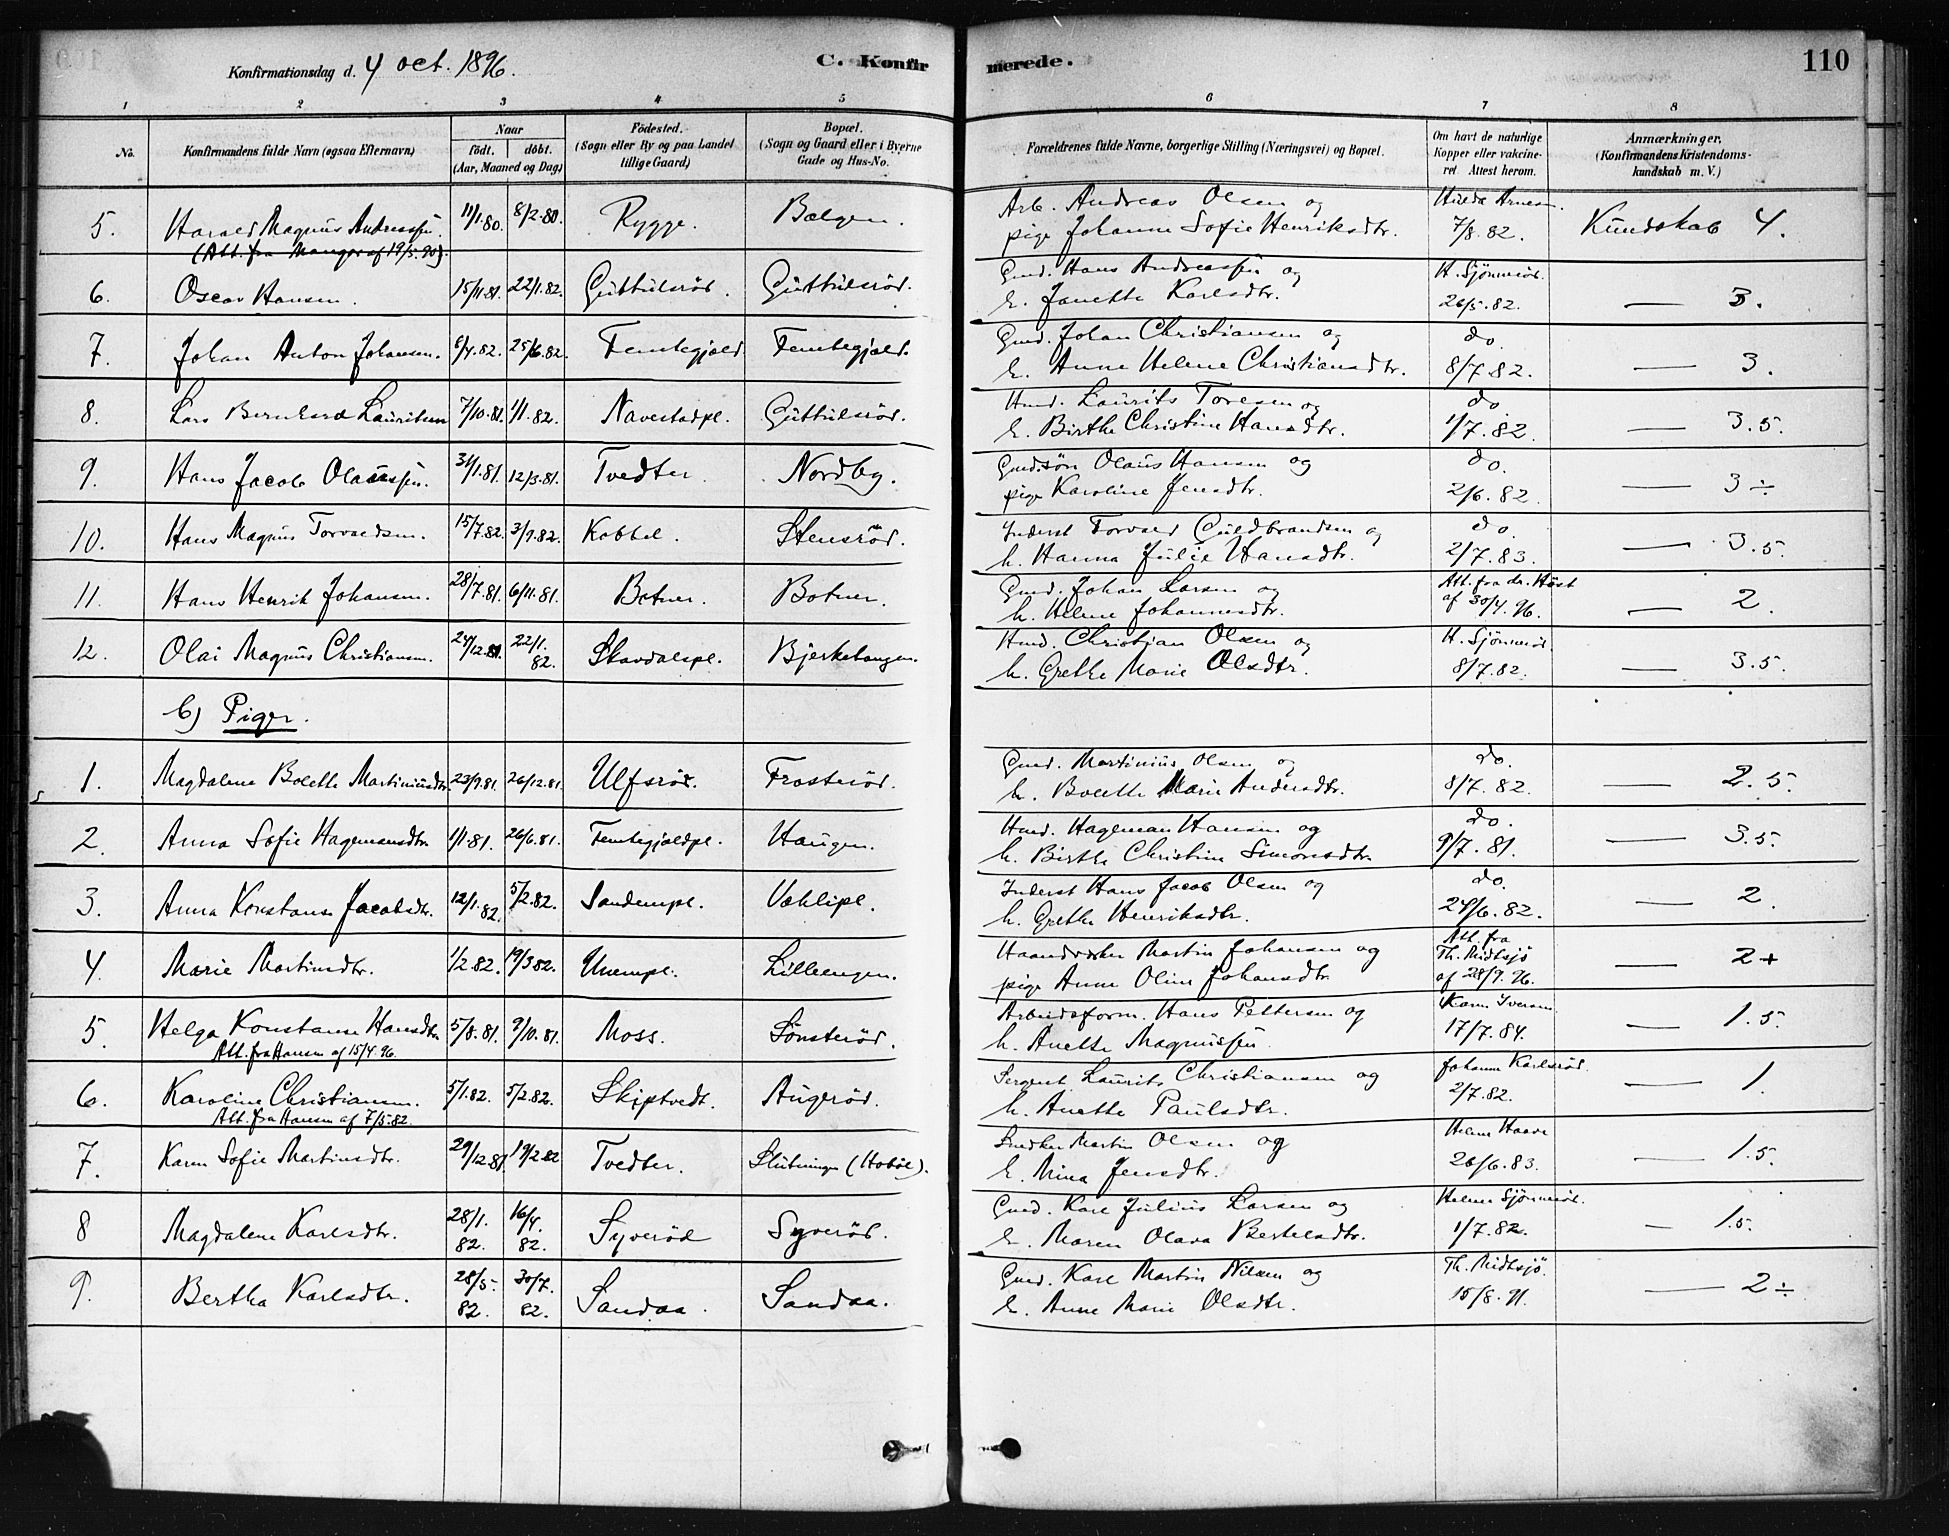 Konfirmationsdag d. 4 oct. 1896.
C. Konfirmerede.
110
1 2 3 4 5 6 7 8
No.
Konfirmandens fulde Navn (ogsaa Efternavn)
Naar
födt. döbt.
(Aar, Maaned og Dag)
Födested.
(Sogn eller By og paa Landet
tillige Gaard)
Bopæl.
(Sogn og Gaard eller i Byerne
Gade og Hus-No.
Forældrenes fulde Navne, borgerlige Stilling (Næringsvei) og Bopæl.
Om havt de naturlige
Kopper eller vakcine-
ret Attest herom.
Anmærkninger,
(Konfirmandens Kristendoms-
kundskab m. V.)
5. Harald Magnus Andreassen. 11/1.80. 8/2.80. Rygge. Bælgen. Arb. Andreas Olsen og
pige Johanne Sofie Henriksdtr. Hilda Arnesen. 7/8.82. Kundskab 4.
(Att. fra Manger af 19/5.90).
6. Oscar Hansen. 15/11.81. 22/1.82. Guttulsröd. Guttulsröd. Gmd. Hans Andreassen og
h. Janette Karlsdtr. H. Sjönneröd. 26/5.82. — 3.
7. Johan Anton Johansen. 6/4.82. 25/6.82. Femtegjeld. Femtegjeld. Gmd. Johan Christiansen og
h. Anne Helene Christiansdtr. do. 8/7.82. — 3.
8. Lars Bernhard Lauritsen 7/10.81. 1/1.82. Navestadpl. Guttulsröd. Hmd. Laurits Toresen og
h. Birthe Christine Hansdtr. do 1/7.82. — 3.5.
9. Hans Jacob Olaussen. 31/1.81. 12/3.81. Tvedter. Nordby. Gmdsön Olaus Hansen og
pige Karoline Jensdtr. do. 2/6.82. — 3 ÷
10. Hans Magnus Torvaldsen. 15/7.82. 3/9.82. Kabbel. Stensröd. Inderst Torvald Guldbrandsen og
h. Hanna Julie Hansdtr. do. 2/7.83. — 3.5.
11. Hans Henrik Johansen. 28/7.81. 6/11.81. Botner. Botner. Gmd. Johan Larsen og
h. Helene Johannesdtr. Att. fra dr. Höst
af 30/4.96. — 2.
12. Olai Magnus Christiansen. 24/12.81. 22/1.82. Skavdalspl. Bjerketangen. Hmd. Christian Olsen og
h. Grethe Marie Olsdtr. H. Sjönneröd. 8/7.82. — 3.5.
b) Piger.
1. Magdalene Bolette Martiniusdtr. 23/9.81. 26/12.81. Ulfsröd. Frosteröd. Gmd. Martinius Olsen og
h. Bolette Marie Andersdtr. do. 8/7.82. — 2.5.
2. Anna Sofie Hagemansdtr. 1/1.81. 26/6.81. Femtegjeldpl. Haugen. Hmd. Hageman Hansen og
h. Birthe Christine Simonsdtr. do. 9/7.81. — 3.5.
3. Anna Konstanse Jacobsdtr. 12/1.82. 5/2.82. Sandempl. Vahlipl. Inderst Hans Jacob Olsen og
h. Grethe Henriksdtr. do. 24/6.82. — 2.
4. Marie Martinsdtr. 1/2.82. 19/3.82. Unempl. Lilleengen. Haandværker Martin Johansen og
pige Anne Oline Johansdtr. Att. fra
Th. Midtsjö
af 28/9.96. — 2+
5. Helga Konstanse Hansdtr 5/8.81. 9/10.81. Moss. Sönsteröd. Arbeidsform. Hans Pettersen og
h. Anette Magnussen. Karen Iversen 17/7.84. — 1.5.
Att. fra Hansen af 15/4.96.
6. Karoline Christiansen. 5/1.82. 5/2.82. Skiptvedt. Augeröd. Sergent Laurits Christiansen og
h. Anette Paulsdtr. Johanne Karlsröd. 2/7.82. — 1.
Att. fra Hansen af 7/5.82.
7. Karen Sofie Martinsdtr. 29/12.81. 19/2.82 Tvedter. Slutningen (Hoböl). Snedker Martin Olsen og
h. Mina Jensdtr. 26/6.83. — 1.5.
8 Magdalene Karlsdtr. 28/1.82. 16/4.82. Syveröd Syveröd. Gmd. Karl Julius Larsen og
h. Maren Olava Bertelsdtr. Helene Sjönneröd. 1/7.82. — 1.5.
9. Bertha Karlsdtr. 28/5.82. 30/7.82. Sandaa. Sandaa. Gmd. Karl Martin Nilsen og
h. Anne Marie Olsdtr. Th. Midtsjö. 15/8.91. — 2 ÷